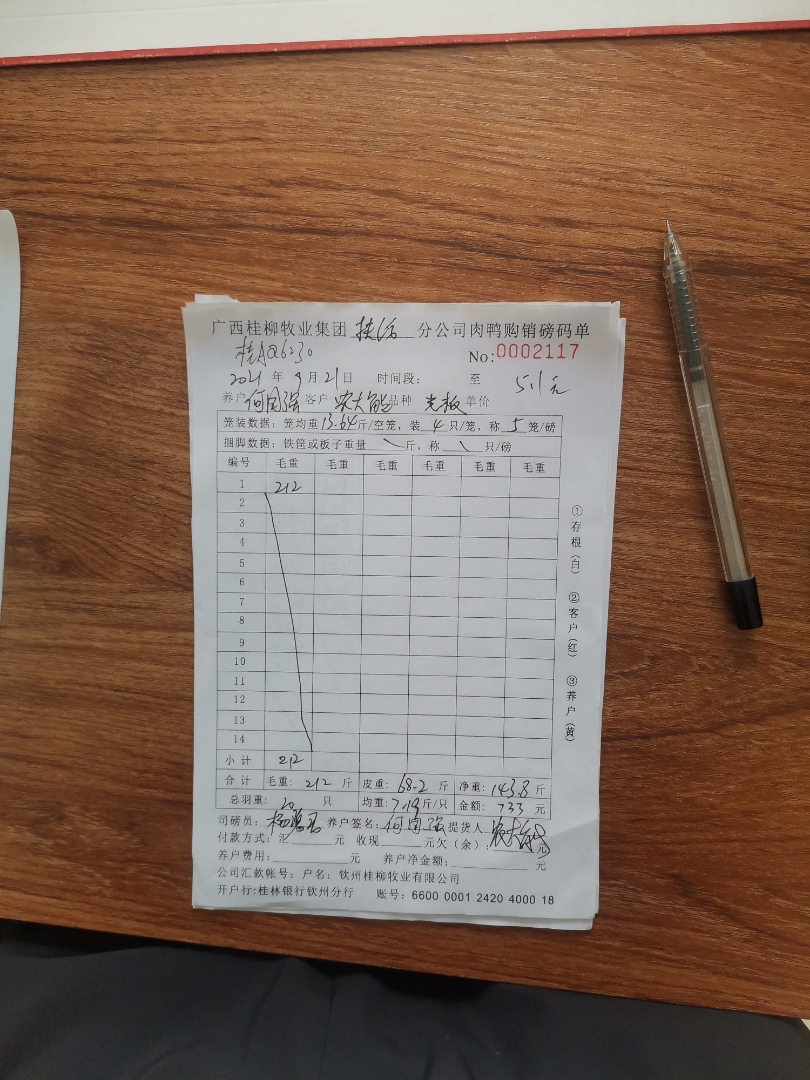 广西桂柳牧业集团 扶绥 分公司肉鸭购销磅码单
桂A Q6230
No:0002117
2021 年 9 月 21 日 时间段: 至 5.1元
养户 何国强 客户 农大能 品种 光板 单价
笼装数据: 笼均重 13.64 斤/空笼, 装 4 只/笼, 称 5 笼/磅
捆脚数据: 铁筐或板子重量 \ 斤, 称 \ 只/磅
编号 毛重 毛重 毛重 毛重 毛重 毛重
1 212
2
3
4
5
6
7
8
9
10
11
12
13
14
小计 212
合计 毛重: 212 斤 皮重: 68.2 斤 净重: 143.8 斤
总羽重: 20 只 均重: 7.19 斤/只 金额: 733 元
司磅员: 养户签名: 何国强 提货人 农大能
付款方式: 汇 元 收现 元欠(余): 元
养户费用: 元 养户净金额: 元
公司汇款帐号: 户名: 钦州桂柳牧业有限公司
开户行: 桂林银行钦州分行 账号: 6600 0001 2420 4000 18
①存根(白) ②客户(红) ③养户(黄)